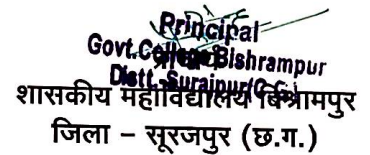 Principal
Govt. College Bishrampur
Distt. Surajpur (C.G.)
शासकीय महाविद्यालय बिश्रामपुर
जिला – सूरजपुर (छ.ग.)